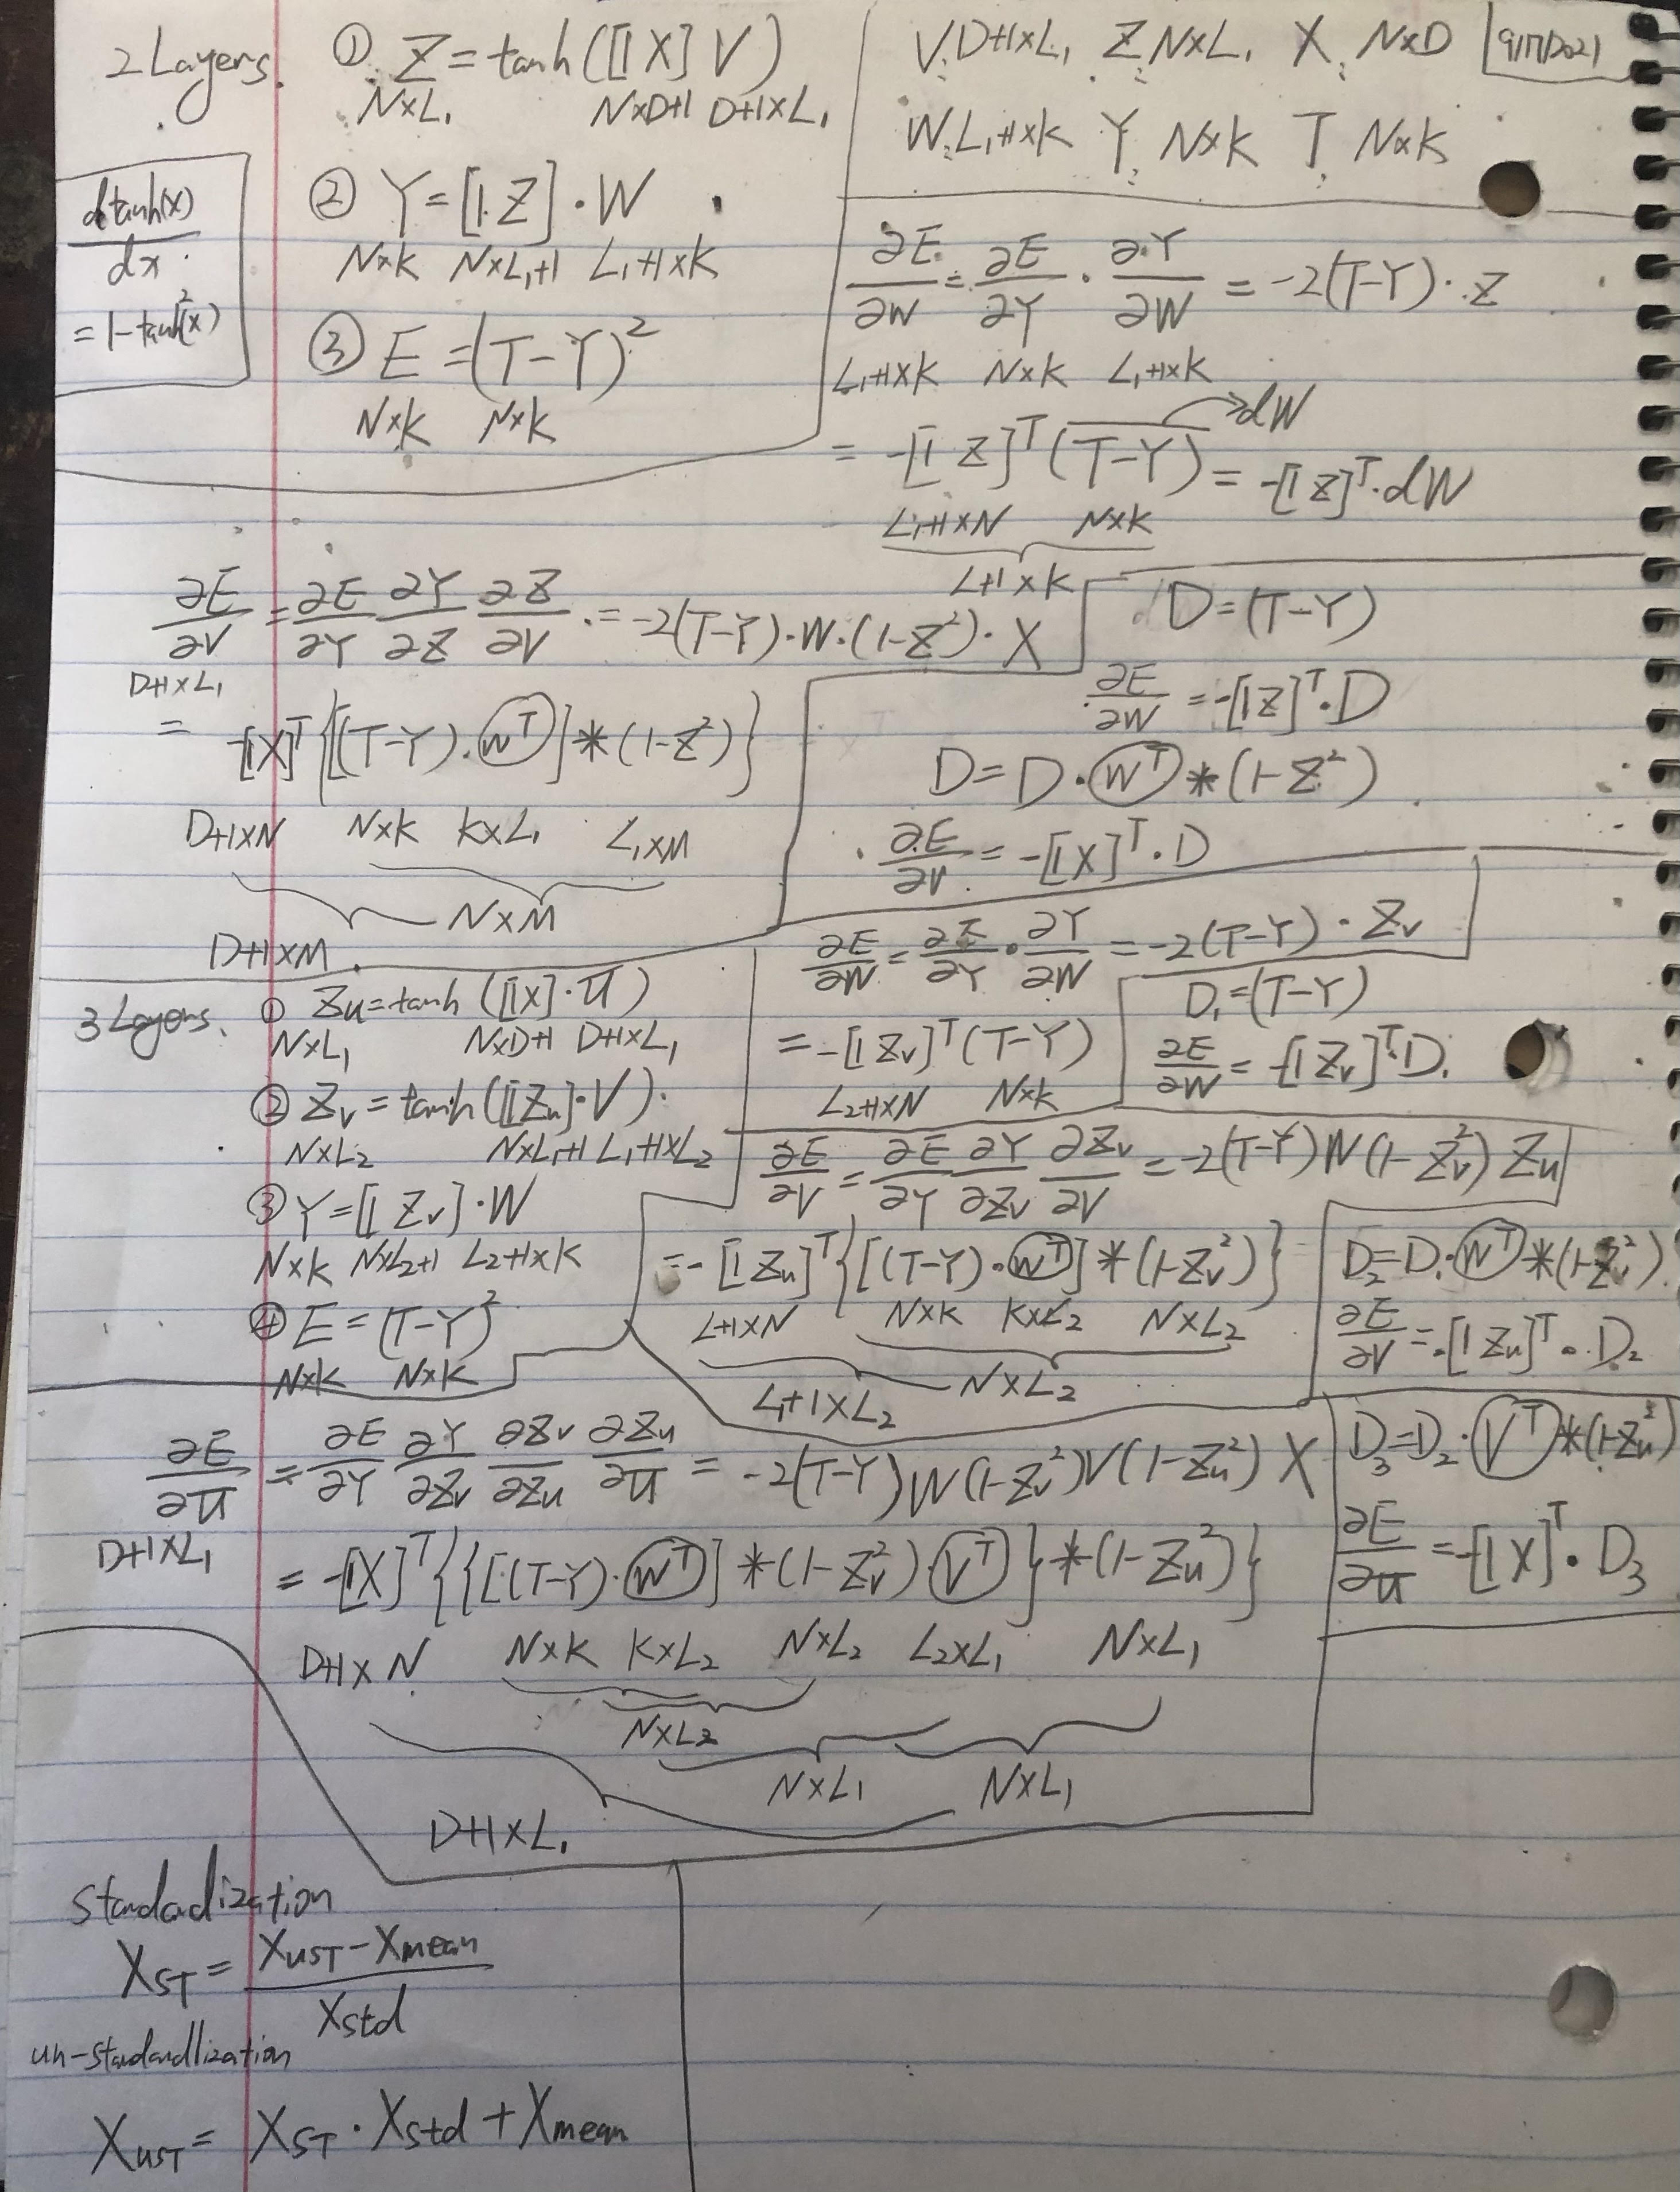 2 Layers.
① Z = tanh([1 X] V)
N×L₁ N×D+1 D+1×L₁
② Y = [1 Z] · W
N×K N×L₁+1 L₁+1×K
③ E = (T-Y)²
N×K N×K
dtanh(x)
dx
= 1-tanh²(x)
V: D+1×L₁ Z: N×L₁ X: N×D
W: L₁+1×K Y: N×K T: N×K
∂E/∂W = ∂E/∂Y · ∂Y/∂W = -2(T-Y) · Z
L₁+1×K N×K L₁+1×K
= -[1 Z]ᵀ (T-Y) = -[1 Z]ᵀ · dW
dW
L₁+1×N N×K
L+1×K
∂E/∂V = ∂E/∂Y ∂Y/∂Z ∂Z/∂V = -2(T-Y)·W·(1-Z²)·X
D+1×L₁
= -[1X]ᵀ {[(T-Y)·Wᵀ] * (1-Z²)}
D+1×N N×K K×L₁ L₁×M
N×M
D+1×M
D = (T-Y)
∂E/∂W = -[1Z]ᵀ · D
D = D · Wᵀ * (1-Z²)
∂E/∂V = -[1X]ᵀ · D
3 Layers.
① Zu = tanh([1X]·U)
N×L₁ N×D+1 D+1×L₁
② Zv = tanh([1Zu]·V)
N×L₂ N×L₁+1 L₁+1×L₂
③ Y = [1 Zv]·W
N×K N×L₂+1 L₂+1×K
④ E = (T-Y)²
N×K N×K
∂E/∂W = ∂E/∂Y · ∂Y/∂W = -2(T-Y) · Zv
= -[1 Zv]ᵀ (T-Y)
L₂+1×N N×K
D₁ = (T-Y)
∂E/∂W = -[1 Zv]ᵀ D₁
∂E/∂V = ∂E/∂Y ∂Y/∂Zv ∂Zv/∂V = -2(T-Y) W (1-Zv²) Zu
= -[1 Zu]ᵀ {[(T-Y)·Wᵀ] * (1-Zv²)}
L+1×N N×K K×L₂ N×L₂
N×L₂
L₁+1×L₂
D₂ = D₁·Wᵀ * (1-Zv²)
∂E/∂V = -[1 Zu]ᵀ · D₂
∂E/∂U = ∂E/∂Y ∂Y/∂Zv ∂Zv/∂Zu ∂Zu/∂U = -2(T-Y) W (1-Zv²) V (1-Zu²) X
D+1×L₁
= -[1X]ᵀ {{[(T-Y)·Wᵀ] * (1-Zv²)·Vᵀ} * (1-Zu²)}
D+1×N N×K K×L₂ N×L₂ L₂×L₁ N×L₁
N×L₂
N×L₁ N×L₁
D+1×L₁
D₃ = D₂·Vᵀ * (1-Zu²)
∂E/∂U = -[1X]ᵀ · D₃
Standadization
X_ST = X_UST - X_mean
X_std
un-standadlization
X_UST = X_ST · X_std + X_mean